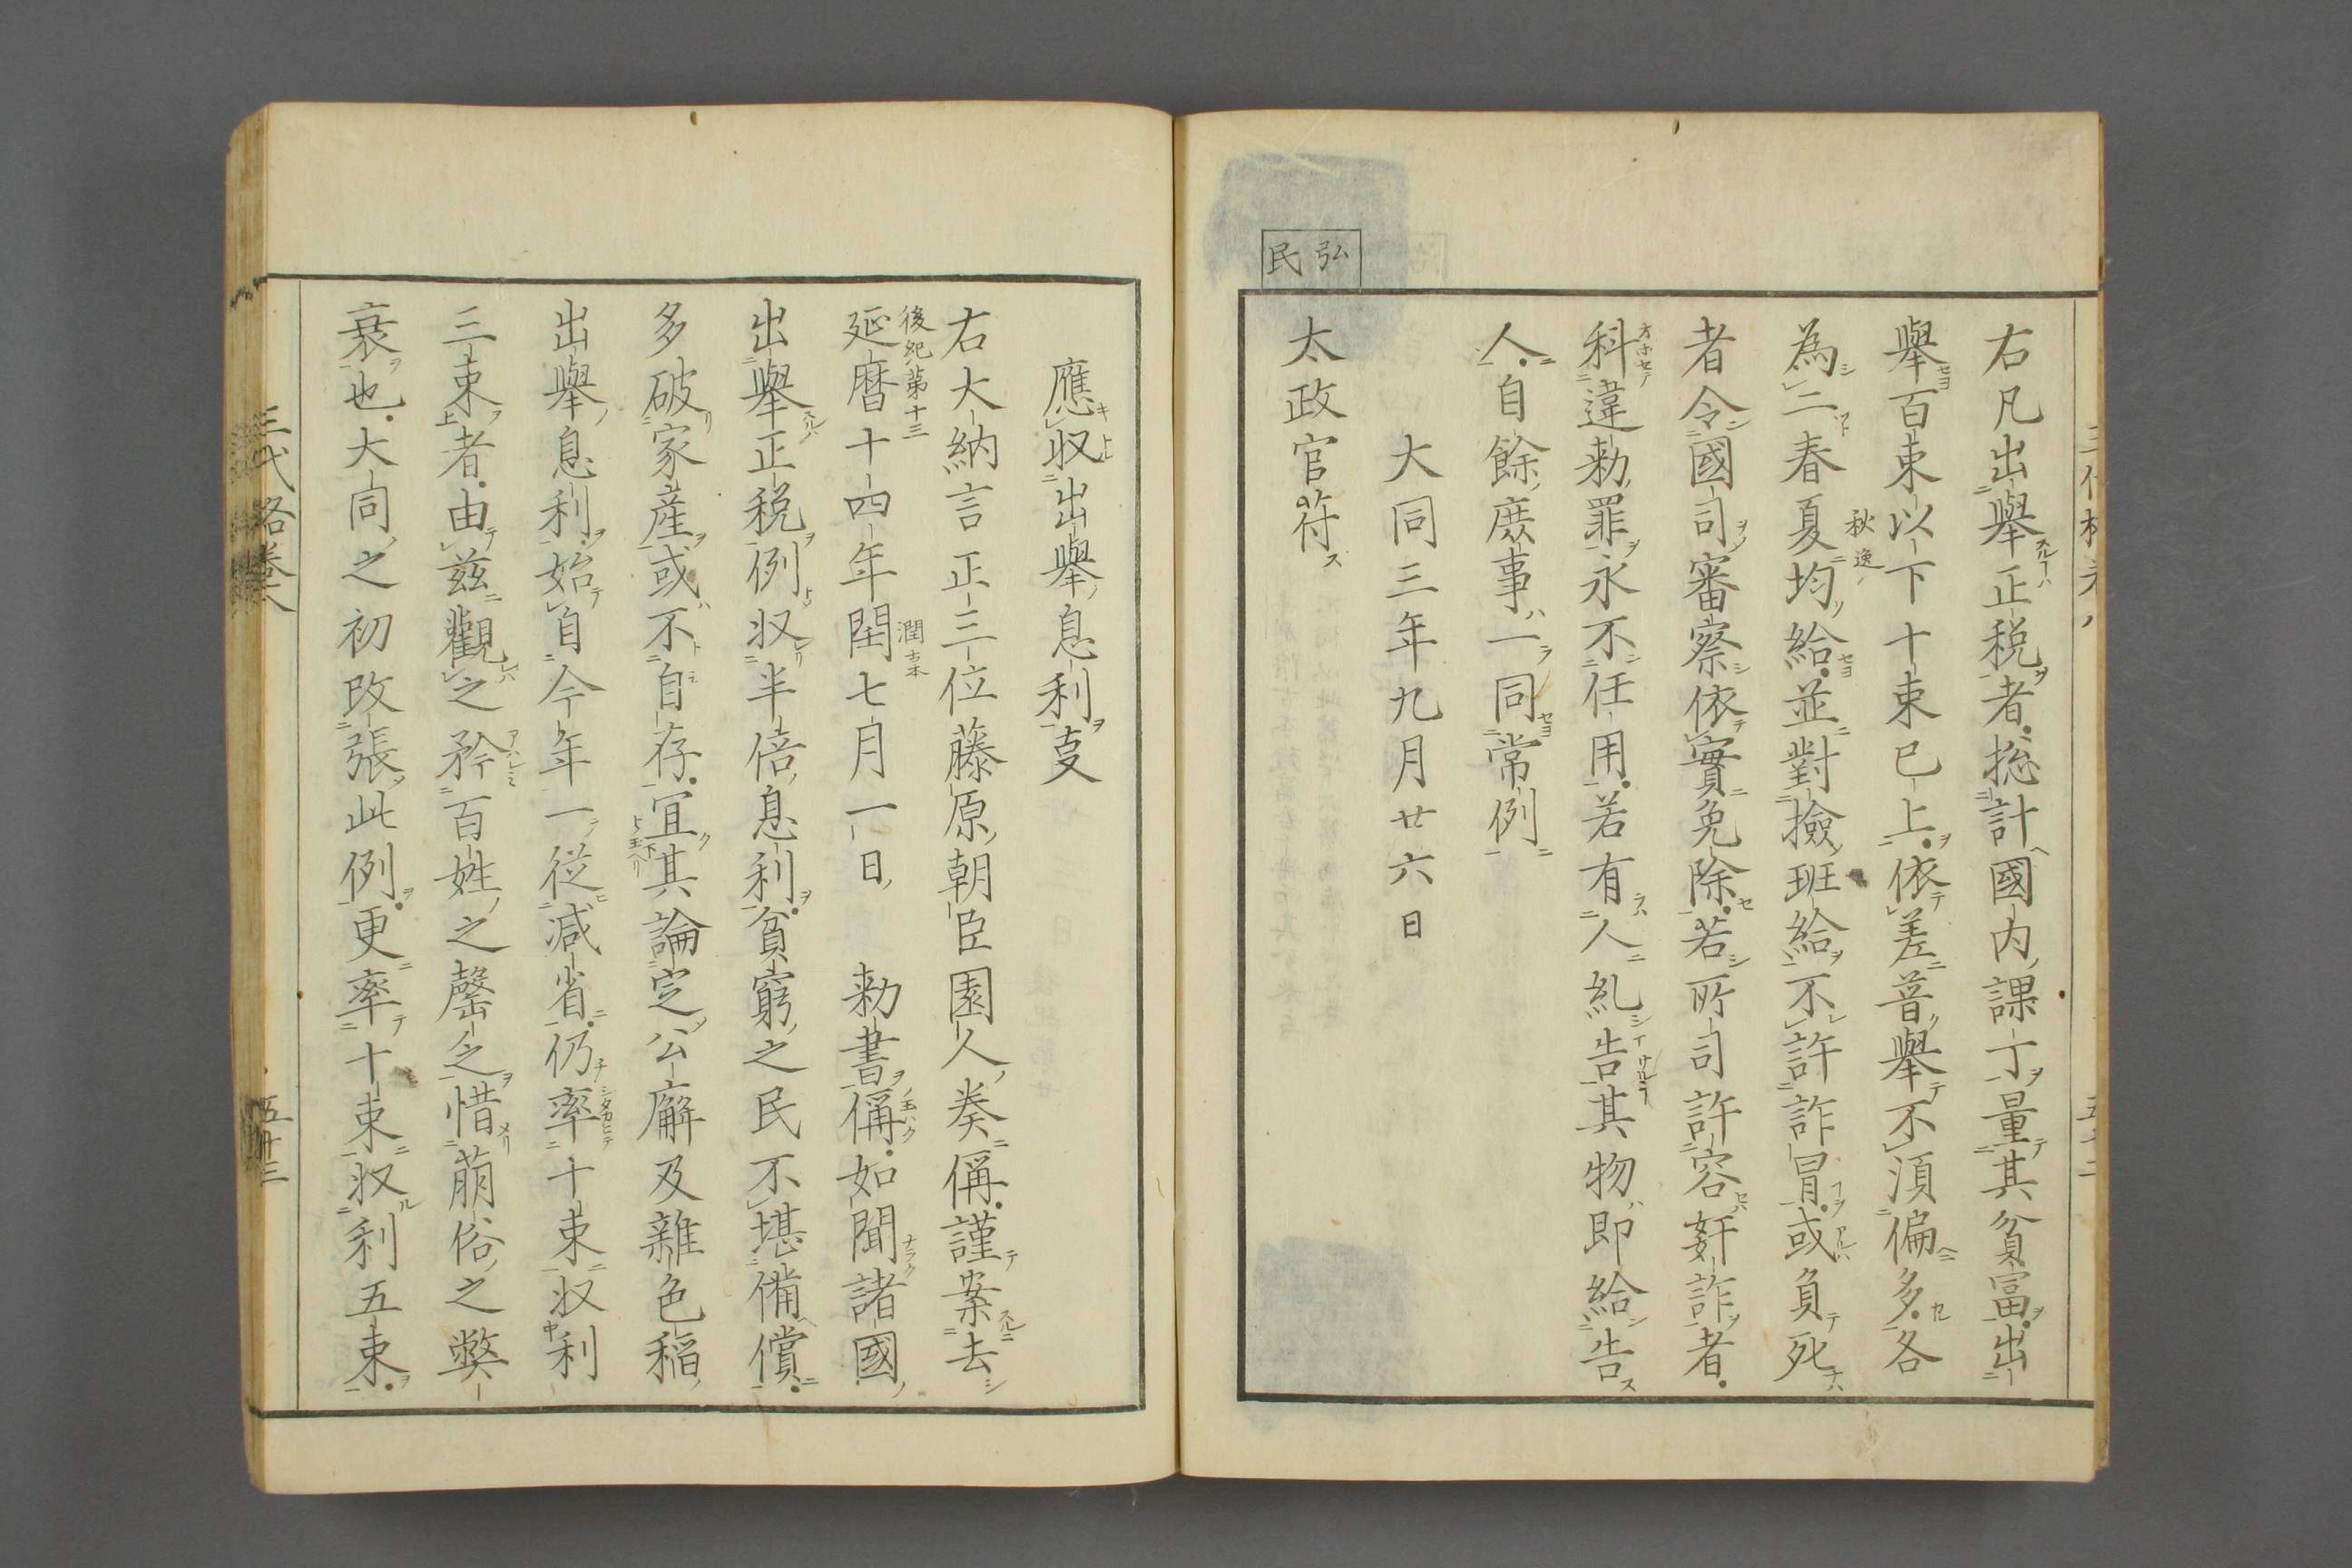 弘民
右凡出擧正税者揔計國内課丁量其貧富出
擧百束以下十束已上依差普擧不須偏多各
為二春夏均給並對撿班給不許詐冒或負死
秋逸
者令國司審察依實免除若所司許容姧詐者
科違勅罪永不任用若有人糺告其物即給告
人自餘庶事一同常例
大同三年九月廿六日
太政官符
應収出擧息利亊
右大納言正三位藤原朝臣園人奏偁謹案去
後紀第十三
延暦十四年閏七月一日 勅書偁如聞諸國
潤古本
出擧正税例収半倍息利貧窮之民不堪備償
多破家産或不自存宜其論定公廨及雜色稲
出擧息利始自今年一從减省仍率十束収利
三束者由茲觀之矜百姓之罄乏惜萠俗之弊
衰也大同之初改張此例更率十束収利五束
三代格巻八
五十三